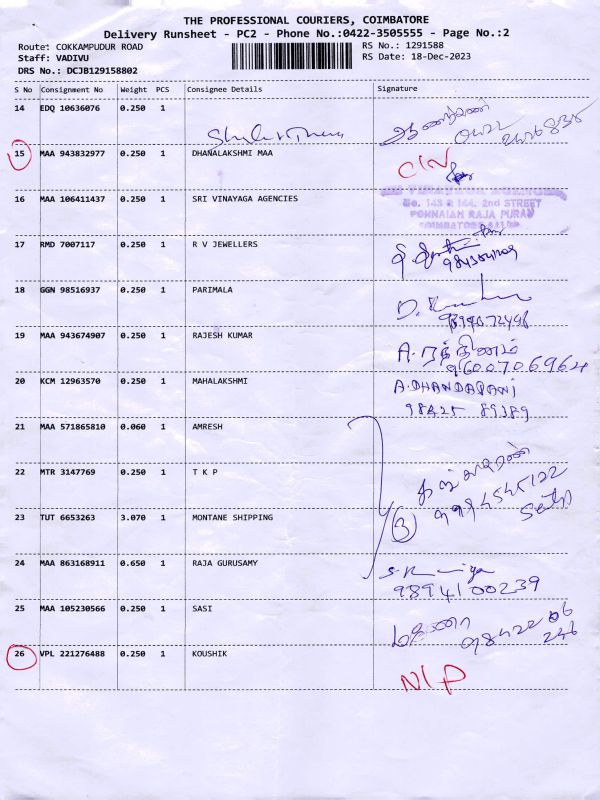 THE PROFESSIONAL COURIERS, COIMBATORE
Delivery Runsheet - PC2 - Phone No.:0422-3505555 - Page No.:2
Route: COKKAMPUDUR ROAD RS No.: 1291588
Staff: VADIVU RS Date: 18-Dec-2023
DRS No.: DCJB129158802
S No Consignment No Weight PCS Consignee Details Signature
14 EDQ 10636076 0.250 1
0422
15 MAA 943832977 0.250 1 DHANALAKSHMI MAA
16 MAA 106411437 0.250 1 SRI VINAYAGA AGENCIES
No. 143 & 144, 2nd STREET
PONNAIAN RAJA PURAM
17 RMD 7007117 0.250 1 R V JEWELLERS
18 GGN 98516937 0.250 1 PARIMALA
19 MAA 943674907 0.250 1 RAJESH KUMAR A. ரத்தினம்
9600706964
20 KCM 12963570 0.250 1 MAHALAKSHMI A. DHANDAPANI
98425 89389
21 MAA 571865810 0.060 1 AMRESH
22 MTR 3147769 0.250 1 T K P
9994545122
23 TUT 6653263 3.070 1 MONTANE SHIPPING 3
24 MAA 863168911 0.650 1 RAJA GURUSAMY
9894100239
25 MAA 105230566 0.250 1 SASI
98422 06
246
26 VPL 221276488 0.250 1 KOUSHIK
N/P